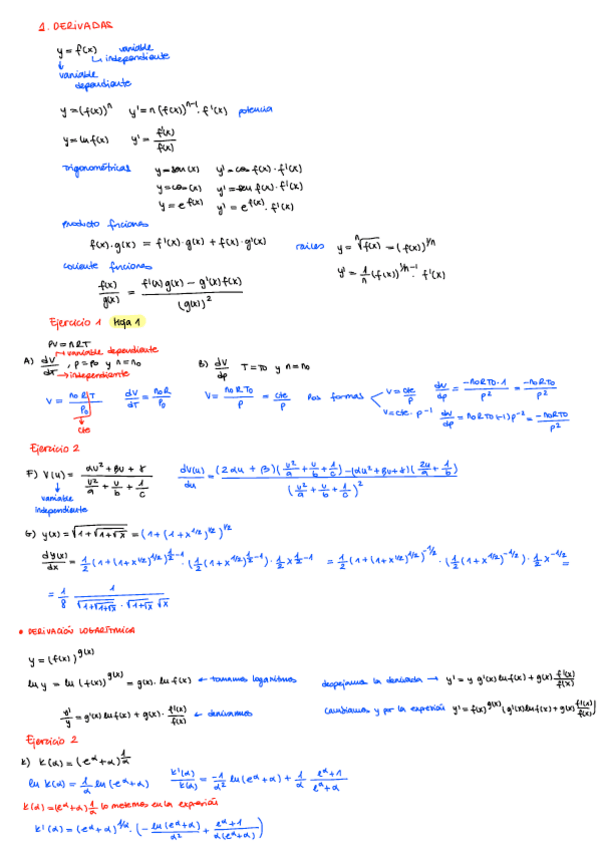 1. DERIVADAS
y = f(x) variable
↳ independiente
↓
variable
dependiente
y = (f(x))^n y' = n (f(x))^{n-1} · f'(x) potencia
y = ln f(x) y' = f'(x)/f(x)
Trigonométricas y = sen(x) y' = cos f(x) · f'(x)
y = cos(x) y' = -sen f(x) · f'(x)
y = e^{f(x)} y' = e^{f(x)} · f'(x)
producto funciones
f(x) · g(x) = f'(x) · g(x) + f(x) · g'(x)
raíces y = ⁿ√f(x) = (f(x))^{1/n}
y' = 1/n (f(x))^{1/n - 1} · f'(x)
cociente funciones
f(x)/g(x) = (f'(x) g(x) − g'(x) f(x)) / (g(x))²
Ejercicio 1 Hoja 1
PV = nRT
A) dV/dT, p = p0 y n = n0
→ variable dependiente
→ independiente
V = n0RT/P0 dV/dT = n0R/P0
↓
cte
B) dV/dp T = T0 y n = n0
V = n0RT0/P = cte/P Dos formas
V = cte/P dV/dp = −n0RT0·1/p² = −n0RT0/p²
V = cte · p^{-1} dV/dp = n0RT0(-1)p^{-2} = −n0RT0/p²
Ejercicio 2
F) V(u) = (αu² + βu + γ) / (u²/a + u/b + 1/c) dV(u)/du = ((2αu + β)(u²/a + u/b + 1/c) − (αu² + βu + γ)(2u/a + 1/b)) / (u²/a + u/b + 1/c)²
↓
variable
independiente
G) y(x) = √(1+√(1+√x)) = (1 + (1 + x^{1/2})^{1/2})^{1/2}
dy(x)/dx = 1/2 (1 + (1 + x^{1/2})^{1/2})^{1/2 - 1} · (1/2 (1 + x^{1/2})^{1/2 - 1}) · 1/2 x^{1/2 - 1} = 1/2 (1 + (1 + x^{1/2})^{1/2})^{-1/2} · (1/2 (1 + x^{1/2})^{-1/2}) · 1/2 x^{-1/2} =
= 1/8 1/(√(1+√(1+√x)) · √(1+√x) √x)
• DERIVACIÓN LOGARÍTMICA
y = (f(x))^{g(x)}
ln y = ln (f(x))^{g(x)} = g(x) · ln f(x) ← tomamos logaritmos
y'/y = g'(x) ln f(x) + g(x) · f'(x)/f(x) ← derivamos
despejamos la derivada → y' = y g'(x) ln f(x) + g(x) f'(x)/f(x)
cambiamos y por la expresión y' = f(x)^{g(x)} (g'(x) ln f(x) + g(x) f'(x)/f(x))
Ejercicio 2
K) K(α) = (e^α + α)^{1/α}
ln K(α) = 1/α ln (e^α + α) K'(α)/K(α) = −1/α² ln (e^α + α) + 1/α (e^α + 1)/(e^α + α)
K(α) = (e^α + α)^{1/α} lo metemos en la expresión
K'(α) = (e^α + α)^{1/α} · (−ln(e^α + α)/α² + (e^α + 1)/(α(e^α + α)))